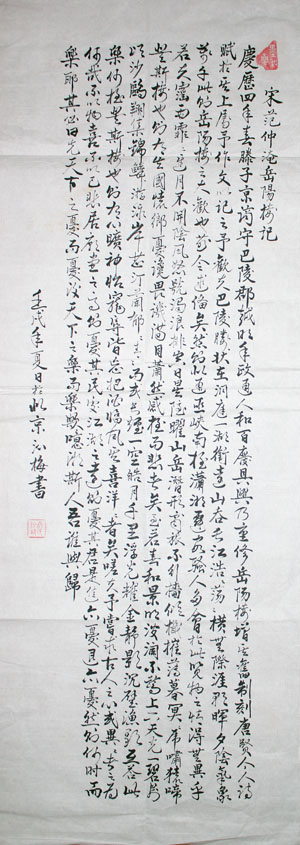 宋范仲淹岳陽樓記
慶曆四年春滕子京謫守巴陵郡越明年政通人和百廢具興乃重修岳陽樓增其舊制刻唐賢今人詩
賦於其上屬予作文以記之予觀夫巴陵勝狀在洞庭一湖銜遠山吞長江浩浩湯湯橫無際涯朝暉夕陰氣象
萬千此則岳陽樓之大觀也前人之述備矣然則北通巫峽南極瀟湘遷客騷人多會於此覽物之情得無異乎
若夫霪雨霏霏連月不開陰風怒號濁浪排空日星隱曜山岳潛形商旅不行檣傾楫摧薄暮冥冥虎嘯猿啼
登斯樓也則有去國懷鄉憂讒畏譏滿目蕭然感極而悲者矣至若春和景明波瀾不驚上下天光一碧萬
頃沙鷗翔集錦鱗游泳岸芷汀蘭郁郁青青而或長煙一空皓月千里浮光耀金靜影沉璧漁歌互答此
樂何極登斯樓也則有心曠神怡寵辱皆忘把酒臨風其喜洋洋者矣嗟夫予嘗求古仁人之心或異二者之為
何哉不以物喜不以己悲居廟堂之高則憂其民處江湖之遠則憂其君是進亦憂退亦憂然則何時而
樂耶其必曰先天下之憂而憂後天下之樂而樂歟噫微斯人吾誰與歸
壬戌年夏日於北京沁梅書